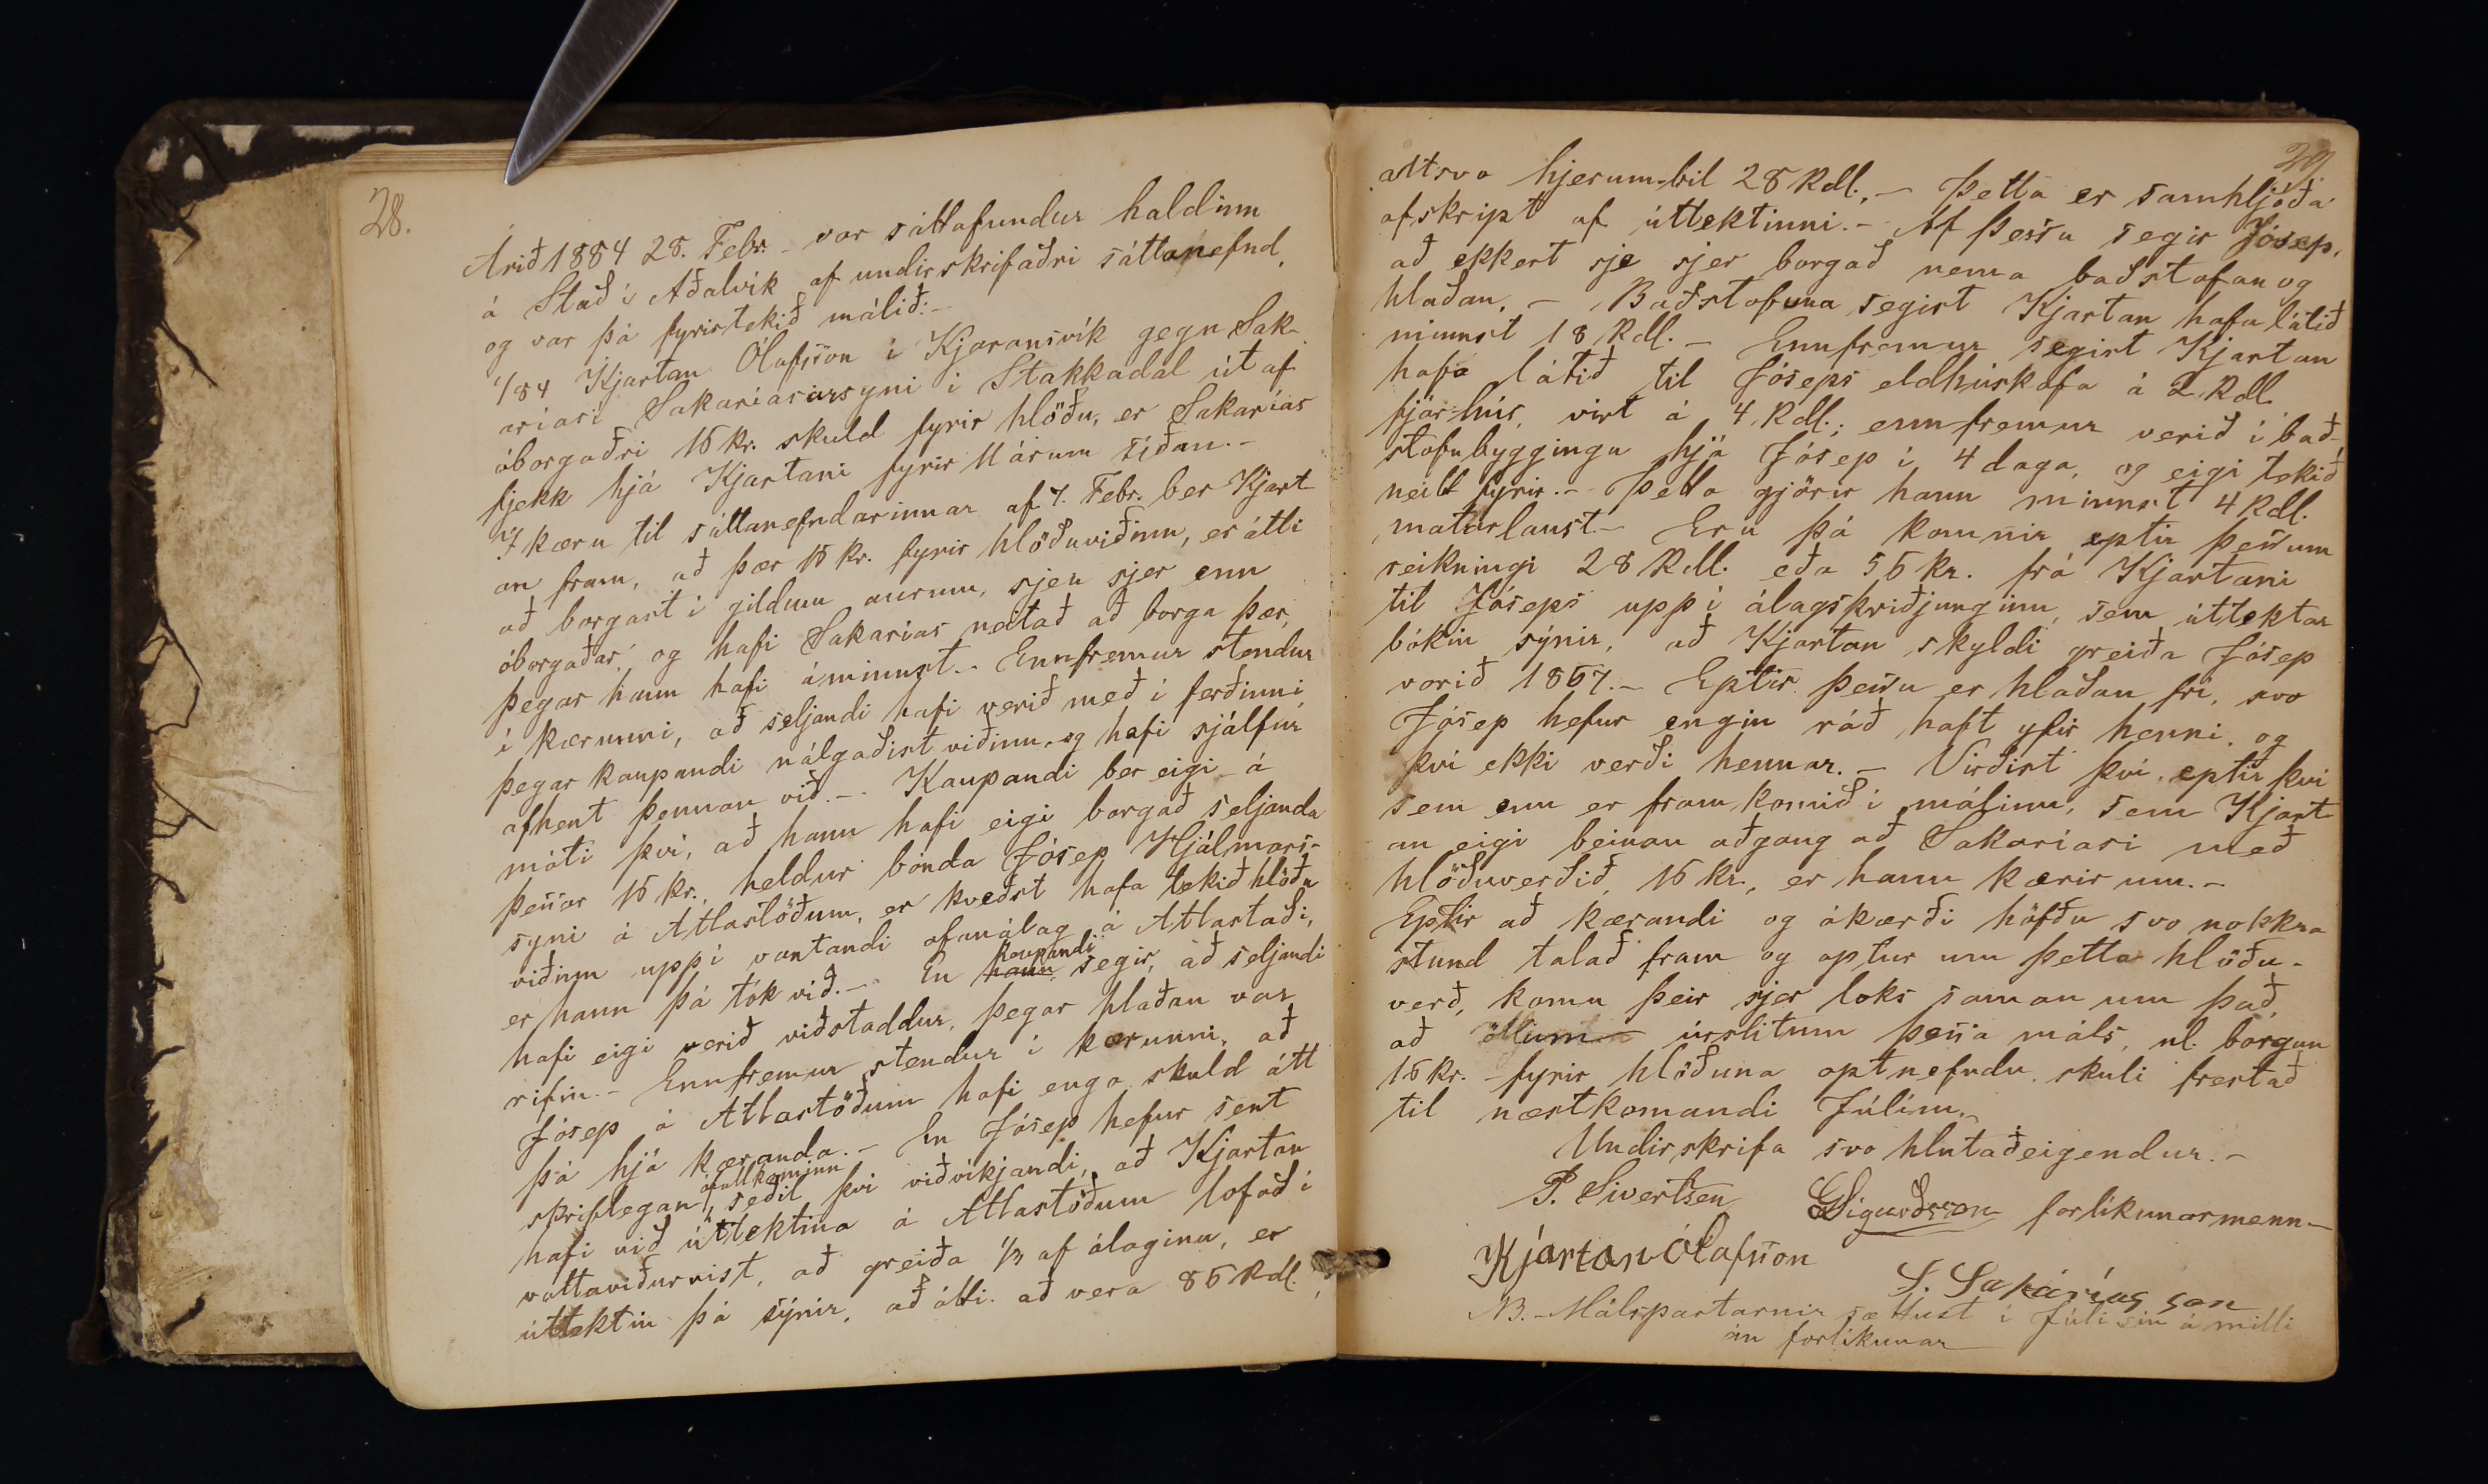 28.
Árið 1884 28. Febr. var sáttafundur haldinn
á Stað í Aðalvík af undirskrifaðri sáttanefnd,
og var þá fyrirtekið málið:-
1/84 Kjartan Ólafsson í Kjaransvík gegn Sak-
aríasi Sakaríasarsyni í Stakkadal út af
óborgaðri 16 kr. skuld fyrir hlöðu, er Sakarías
fjekk hjá Kjartani fyrir 11 árum síðan.-
I kæru til sáttanefndarinnar af 7. Febr. ber Kjart-
an fram, að þær 16 kr. fyrir hlöðuviðinn, er átti
að borgast í gildum aurum, sjeu sjer enn
óborgaðar, og hafi Sakarías neitað að borga þær,
þegar hann hafi áminnst.- Ennfremur stendur
í kærunni, að seljandi hafi verið með í ferðinni,
þegar kaupandi nálgaðist viðinn, og hafi sjálfur
afhent þennan við.- Kaupandi ber eigi á
móti því, að hann hafi eigi borgað seljanda
þessar 16 kr., heldur bónda Jósep Hjálmars-
syni á Atlastöðum, er kveðst hafa tekið hlöðu
viðinn uppí vantandi ofanálag á Atlastaði,
er hann þá tók við.- En hann kaupandi segir, að seljandi
hafi eigi verið viðstaddur, þegar hlaðan var
rifin.- Ennfremur stendur í kærunni, að
Jósep á Atlastöðum hafi enga skuld átt
þá hjá kæranda.- En Jósep hefur sent
skriflegan ófullkominn seðil því viðvíkjandi, að Kjartan
hafi við úttektina á Atlastöðum lofað í
vottaviðurvist, að greiða 1/3 af álaginu, er
úttektin þá sýnir, að átti að vera 85 Rdl.,
29.
altsvo hjerum-bil 28 Rdl.,- Þetta er samhljóða
afskript af úttektinni.- Af þessu segir Jósep,
að ekkert sje sjer borgað nema baðstofan og
hlaðan.- Baðstofuna segist Kjartan hafa látið
minnst 18 Rdl.- Ennfremur segist Kjartan
hafa látið til Jóseps eldhúskofa á 2 Rdl.
fjár-hús, virt á 4 Rdl.; ennfremur verið í bað-
stofubyggingu hjá Jósep í 4 daga, og eigi tekið
neitt fyrir.- Þetta gjörir hann minnst 4 Rdl.
matarlaust.- Eru þá komnir eptir þessum
reikningi 28 Rdl. eða 56 kr. frá Kjartani
til Jóseps upp í álagsþriðjunginn, sem úttektar
bókin sýnir, að Kjartan skyldi greiða Jósep
vorið 1867.- Eptir þessu er hlaðan frí, svo
Jósep hefur engin ráð haft yfir henni, og
því ekki verði hennar.- Virðist því, eptir því
sem enn er fram komið í málinu, sem Kjart-
an eigi beinan aðgang að Sakaríasi með
hlöðuverðið, 16 kr., er hann kærir um.-
Eptir að kærandi og ákærði höfðu svo nokkra
stund talað fram og aptur um þetta hlöðu-
verð, komu þeir sjer loks saman um það,
að öllum úrslitum þessa máls, nl. borgun
16 kr. fyrir hlöðuna optnefndu skuli frestað
til næstkomandi Júlím.
Undirskrifa svo hlutaðeigendur.-
P. Sivertsen GSigurðsson forlíkunarmenn-
Kjartan Ólafsson
S. Sakaríasson
NB.- Málspartarnir sættust í Júlí sín á milli
án forlíkunar